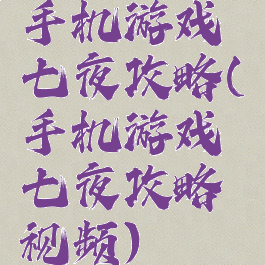 手机游戏
七夜攻略(
手机游戏
七夜攻略
视频)